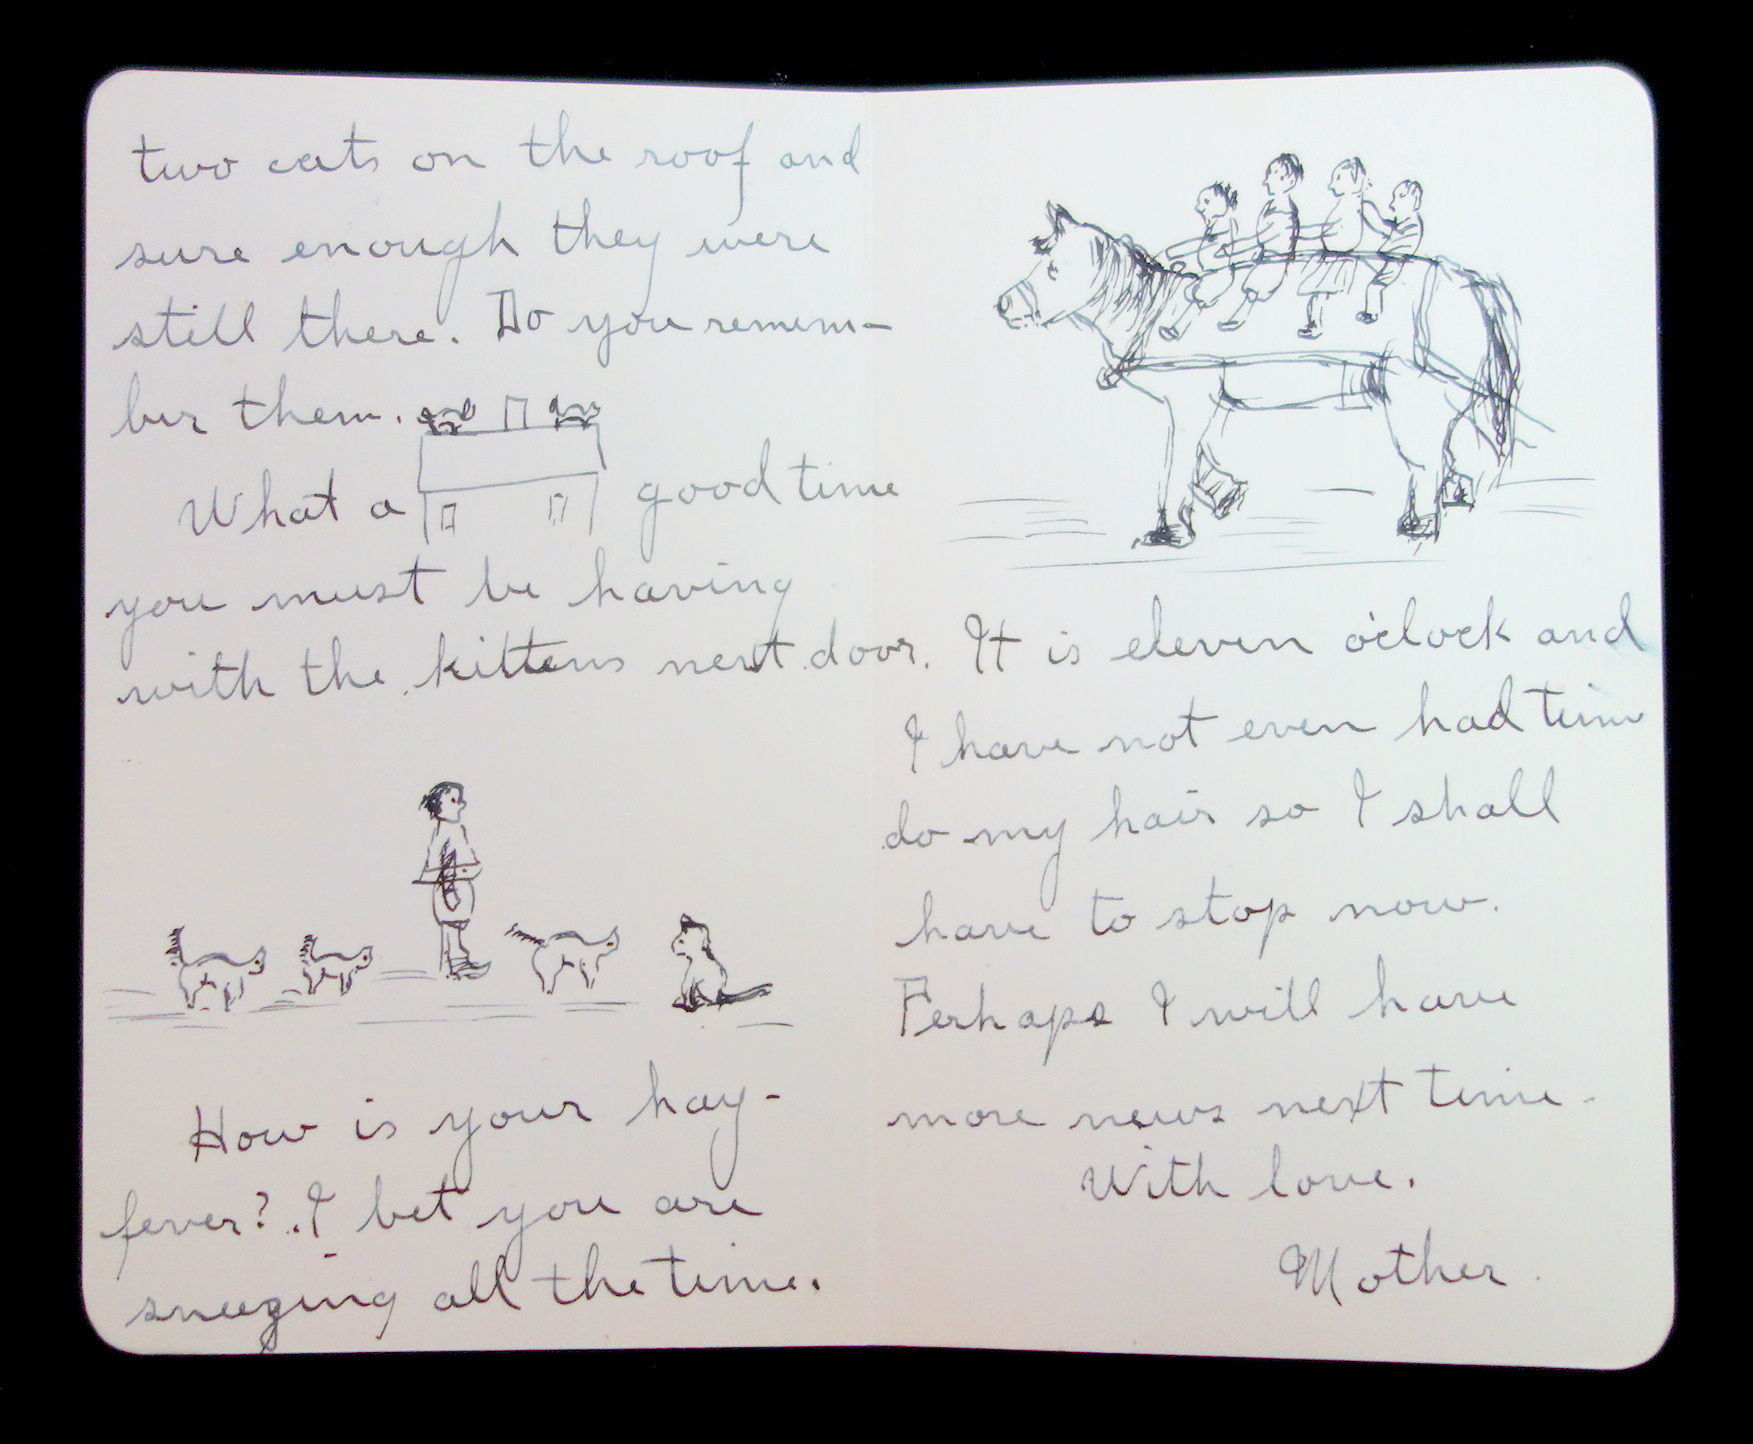 two cats on the roof and
sure enough they were
still there. Do you remem-
ber them.
What a good time
you must be having
with the kittens next door.
How is your hay-
fever? I bet you are
sneezing all the time.
It is eleven o'clock and
I have not even had time
do my hair so I shall
have to stop now.
Perhaps I will have
more news next time.
With love.
Mother.